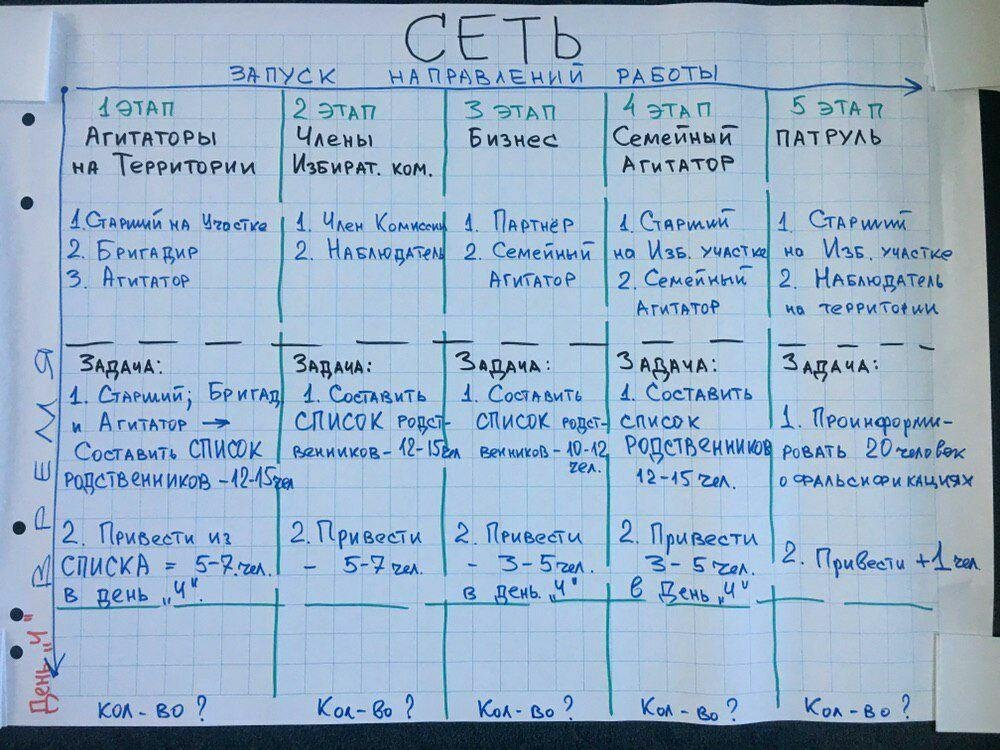 СЕТЬ
ЗАПУСК НАПРАВЛЕНИЙ РАБОТЫ
1 ЭТАП
Агитаторы
на Территории
1. Старший на Участке
2. Бригадир
3. Агитатор
Задача:
1. Старший; Бригад
и Агитатор →
Составить СПИСОК
родственников - 12-15 чел
2. Привести из
СПИСКА = 5-7 чел.
в день „Ч".
Кол-во?
2 ЭТАП
Члены
Избират. ком.
1. Член Комиссии
2. Наблюдатель
Задача:
1. Составить
СПИСОК родст-
венников - 12-15 чел
2. Привести
- 5-7 чел.
Кол-во?
3 ЭТАП
Бизнес
1. Партнёр
2. Семейный
Агитатор
Задача:
1. Составить
СПИСОК родст-
венников - 10-12
чел.
2. Привести
- 3-5 чел.
в день „Ч"
Кол-во?
4 ЭТАП
Семейный
Агитатор
1. Старший
на Изб. участке
2. Семейный
Агитатор
Задача:
1. Составить
список
РОДСТВЕННИКОВ
12-15 чел.
2. Привести
3-5 чел.
в День „Ч"
Кол-во?
5 ЭТАП
ПАТРУЛЬ
1. Старший
на Изб. участке
2. Наблюдатель
на территории
Задача:
1. Проинформи-
ровать 20 человек
о фальсификациях
2. Привести +1 чел.
Кол-во?
ВРЕМЯ
День „Ч"